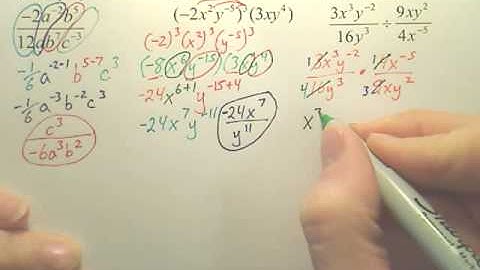 -2a⁻²b⁵
12ab⁷c⁻³
-1/6 a⁻²⁻¹ b⁵⁻⁷ c³
-1/6 a⁻³ b⁻² c³
c³
-6a³b²
(−2x²y⁻⁵)³(3xy⁴)
(-2)³(x²)³(y⁻⁵)³
(-8x⁶y⁻¹⁵)(3xy⁴)
-24x⁶⁺¹ y⁻¹⁵⁺⁴
-24x⁷y⁻¹¹
-24x⁷
y¹¹
3x³y⁻² ÷ 9xy²
16y³ 4x⁻⁵
1 3x³y⁻² · 1 4x⁻⁵
4 16y³ 3 9xy²
x